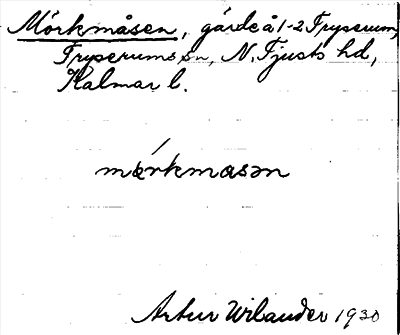 Mörkmåsen, gärde å 1-2 Fryserum,
Fryserums sn, N. Tjusts hd,
Kalmar l.
mœ́rkmasən
Artur Wilander 1930